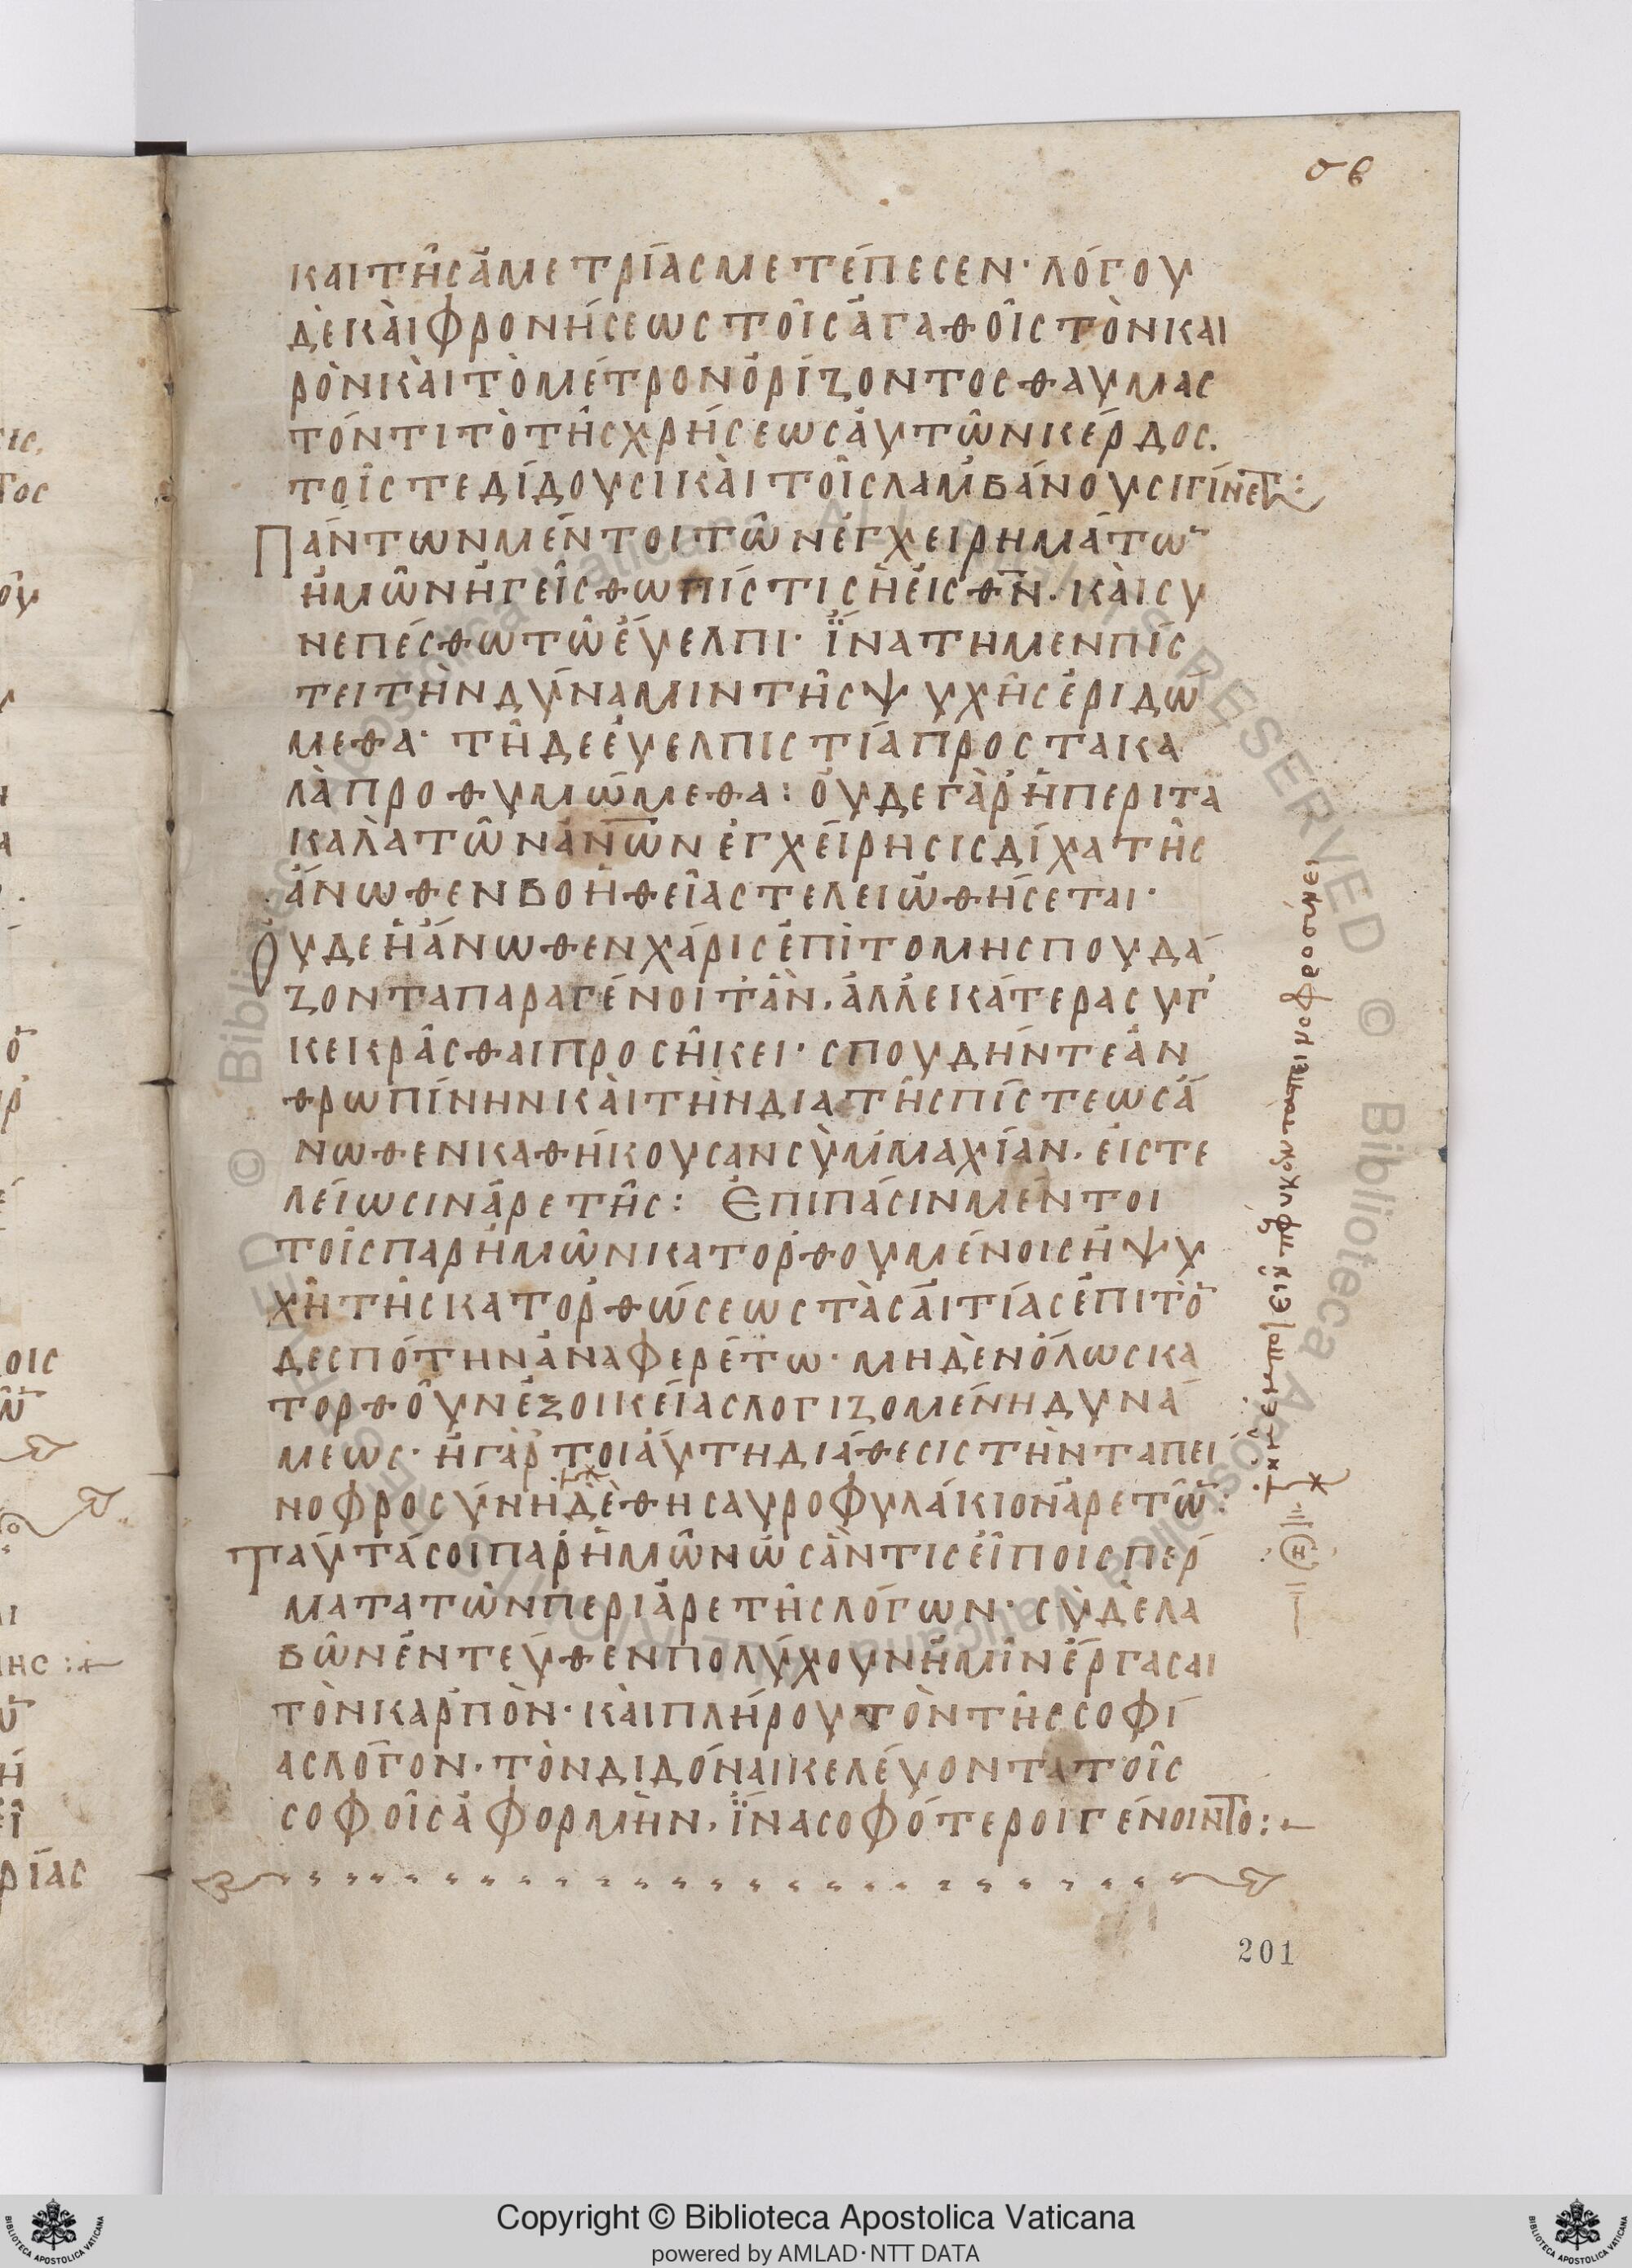 σβ
ΚΑΙ ΤΗ͂Ϲ ἈΜΕΤΡΊΑϹ ΜΕΤΈΠΕϹΕΝ· ΛΌΓΟΥ
ΔῈ ΚᾺΙ ΦΡΟΝΉϹΕΩϹ ΤΟΙ͂Ϲ ἈΓΑΘΟΙ͂Ϲ ΤῸΝ ΚΑΙ
ΡῸΝ ΚᾺΙ ΤῸ ΜΈΤΡΟΝ ὉΡΊΖΟΝΤΟϹ ΘΑΥΜΑϹ
ΤΌΝ ΤΙ ΤῸ ΤΗ͂Ϲ ΧΡΉϹΕΩϹ ἈΥΤΩ͂Ν ΚΈΡΔΟϹ.
ΤΟΙ͂Ϲ ΤΕ ΔΊΔΟΥϹΙ ΚᾺΙ ΤΟΙ͂Ϲ ΛΑΜΒΆΝΟΥϹΙ ΓΊΝΕΤ:
ΠΆΝΤΩΝ ΜΈΝΤΟΙ ΤΩ͂Ν ἘΓΧΕΙΡΗΜΆΤΩ¯
ἩΜΩ͂Ν ἩΓΕΊϹΘΩ ΠΊϹΤΙϹ Ἡ ἘΙϹ Θ̅Ν̅. ΚᾺΙ ϹΥ
ΝΕΠΈϹΘΩ ΤΩ͂ ἘΎΕΛΠΙ· ἽΝΑ ΤΗ ΜΕΝ ΠΊϹ
ΤΕΙ ΤῊΝ ΔΎΝΑΜΙΝ ΤΗ͂Ϲ ΨΥΧΗ͂Ϲ ἘΡΙΔΏ
ΜΕΘΑ· ΤΗ͂ ΔΕ ἘΥΕΛΠΙϹΤΊΑ ΠΡΟϹ ΤΑ ΚΑ
ΛᾺ ΠΡΟΘΥΜΏΜΕΘΑ: ὈΥΔΕ ΓᾺΡ Ἡ ΠΕΡΙ ΤΑ
ΚΑΛᾺ ΤΩ͂Ν ἈΝ̅Ω̅Ν ἘΓΧΕΊΡΗϹΙϹ ΔΊΧΑ ΤΗ͂Ϲ
ἌΝΩΘΕΝ ΒΟΗΘΕΊΑϹ ΤΕΛΕΙΩΘΉϹΕΤΑΙ·
ὈΥΔΕ Ἡ ἌΝΩΘΕΝ ΧΆΡΙϹ ἘΠῚ ΤΟ ΜΗ ϹΠΟΥΔΆ
ΖΟΝΤΑ ΠΑΡΑΓΈΝΟΙΤ ἊΝ. ἈΛΛ ἙΚΆΤΕΡΑ ϹΥΓ
ΚΕΚΡΑ͂ϹΘΑΙ ΠΡΟϹΗ͂ΚΕΙ· ϹΠΟΥΔΉΝ ΤΕ ἈΝ
ΘΡΩΠΊΝΗΝ ΚᾺΙ ΤῊΝ ΔΙΑ ΤΗ͂Ϲ ΠΊϹΤΕΩϹ Ἄ
ΝΩΘΕΝ ΚΑΘΉΚΟΥϹΑΝ ϹΥΜΜΑΧΊΑΝ. ἘΙϹ ΤΕ
ΛΕΊΩϹΙΝ ἈΡΕΤΗ͂Ϲ: ἘΠΙ ΠΆϹΙΝ ΜΈΝΤΟΙ
ΤΟΙ͂Ϲ ΠΑΡ ἩΜΩ͂Ν ΚΑΤΟΡΘΟΥΜΈΝΟΙϹ Ἡ ΨΥ
ΧῊ ΤΗ͂Ϲ ΚΑΤΟΡΘΏϹΕΩϹ ΤᾺϹ ἈΙΤΊΑϹ ἘΠΙ ΤῸ¯
ΔΕϹΠΌΤΗΝ ἈΝΑΦΕΡΈΤΩ· ΜΗΔῈΝ ὍΛΩϹ ΚΑ
ΤΟΡΘΟΥ͂Ν ἘΞ ΟΙΚΕΊΑϹ ΛΟΓΙΖΟΜΈΝΗ ΔΥΝΆ
ΜΕΩϹ· Ἡ ΓᾺΡ ΤΟΙΑΎΤΗ ΔΙΆΘΕϹΙϹ ΤῊΝ ΤΑΠΕΙ
ΝΟΦΡΟϹΎΝΗ ΔῈ ΘΗϹΑΥΡΟΦΥΛΆΚΙΟΝ ἈΡΕΤΩ͂¯:
ΤΑΥΤΆ ϹΟΙ ΠΑΡ ἩΜΩ͂Ν ὩϹ ἊΝ ΤΙϹ ἘΊΠΟΙ ϹΠΕΡ
ΜΑΤΑ ΤΩ͂Ν ΠΕΡΙ ἈΡΕΤΗ͂Ϲ ΛΌΓΩΝ· ϹῪ ΔῈ ΛΑ
ΒΩ͂Ν ἘΝΤΕΎΘΕΝ ΠΟΛΎΧΟΥΝ ἩΜΙ͂Ν ἘΡΓΑϹΑΙ
ΤῸΝ ΚΑΡΠῸΝ· ΚᾺΙ ΠΛΉΡΟΥ ΤῸΝ ΤΗ͂Ϲ ϹΟΦΊ
ΑϹ ΛΌΓΟΝ. ΤῸΝ ΔΙΔΌΝΑΙ ΚΕΛΕΎΟΝΤΑ ΤΟΙ͂Ϲ
ϹΟΦΟΙ͂Ϲ ἈΦΟΡΜῊΝ. ἽΝΑ ϹΟΦΌΤΕΡΟΙ ΓΈΝΟΙΝΤΟ:
201
Copyright © Biblioteca Apostolica Vaticana
powered by AMLAD·NTT DATA